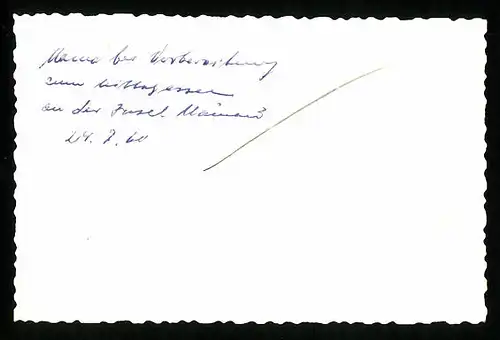 Mama bei Vorbereitung
zum Mittagessen
an der Insel Mainau
24. 7. 60